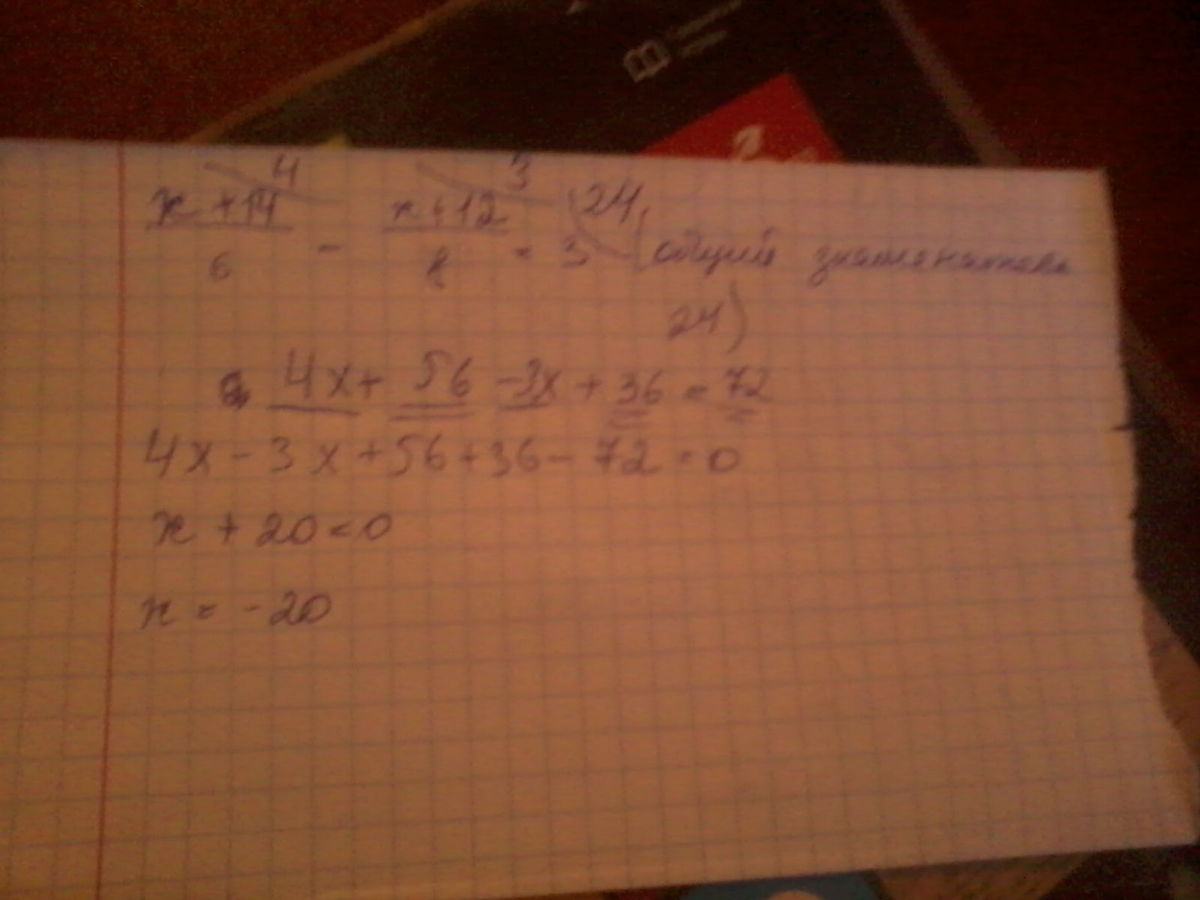 4 3
x + 14 x + 12 24
6 - 8 = 3 (общий знаменатель
24)
4x + 56 - 3x + 36 = 72
4x - 3x + 56 + 36 - 72 = 0
x + 20 = 0
x = -20